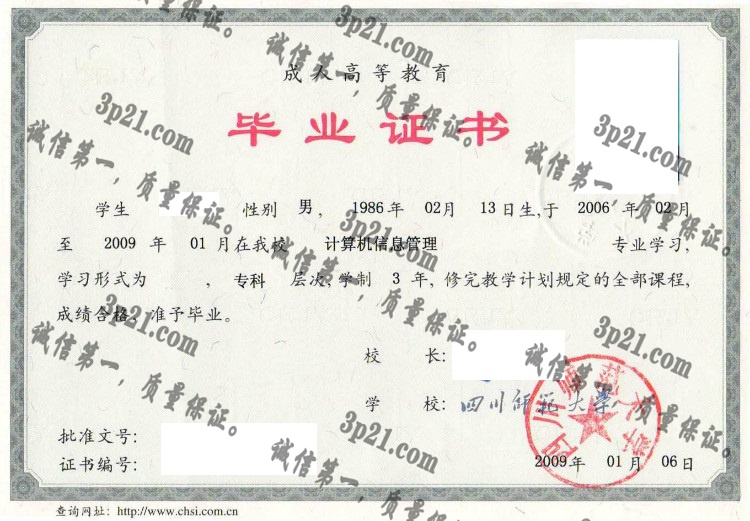 成人高等教育
毕业证书
学生 性别 男, 1986年 02月 13日生,于 2006年 02月
至 2009年 01月在我校 计算机信息管理 专业学习,
学习形式为 , 专科 层次,学制 3 年,修完教学计划规定的全部课程,
成绩合格,准予毕业。
校 长:
学 校: 四川师范大学
四川师范大学
批准文号:
证书编号:
2009年 01月 06日
查询网址: http://www.chsi.com.cn
3p21.com
诚信第一,质量保证。
3p21.com
诚信第一,质量保证。
3p21.com
诚信第一,质量保证。
3p21.com
诚信第一,质量保证。
3p21.com
诚信第一,质量保证。
3p21.com
诚信第一,质量保证。
3p21.com
诚信第一,质量保证。
3p21.com
诚信第一,质量保证。